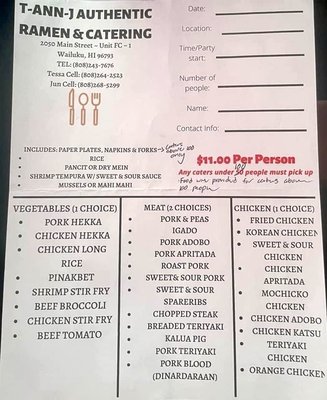 T-ANN-J AUTHENTIC
RAMEN & CATERING
2050 Main Street – Unit FC – 1
Wailuku, HI 96793
TEL: (808)243-7676
Tessa Cell: (808)264-2523
Jun Cell: (808)268-5299
Date:
Location:
Time/Party
start:
Number of
people:
Name:
Contact Info:
INCLUDES: PAPER PLATES, NAPKINS & FORKS
above 100
only
RICE
PANCIT OR DRY MEIN
SHRIMP TEMPURA W/ SWEET & SOUR SAUCE
MUSSELS OR MAHI MAHI
$11.00 Per Person
100
Any caters under 50 people must pick up
above
100 people
VEGETABLES (1 CHOICE)
PORK HEKKA
CHICKEN HEKKA
CHICKEN LONG
RICE
PINAKBET
SHRIMP STIR FRY
BEEF BROCCOLI
CHICKEN STIR FRY
BEEF TOMATO
MEAT (2 CHOICES)
PORK & PEAS
IGADO
PORK ADOBO
PORK APRITADA
ROAST PORK
SWEET& SOUR PORK
SWEET & SOUR
SPARERIBS
CHOPPED STEAK
BREADED TERIYAKI
KALUA PIG
PORK TERIYAKI
PORK BLOOD
(DINARDARAAN)
CHICKEN (1 CHOICE)
FRIED CHICKEN
KOREAN CHICKEN
SWEET & SOUR
CHICKEN
CHICKEN
APRITADA
MOCHICKO
CHICKEN
CHICKEN ADOBO
CHICKEN KATSU
TERIYAKI
CHICKEN
ORANGE CHICKEN